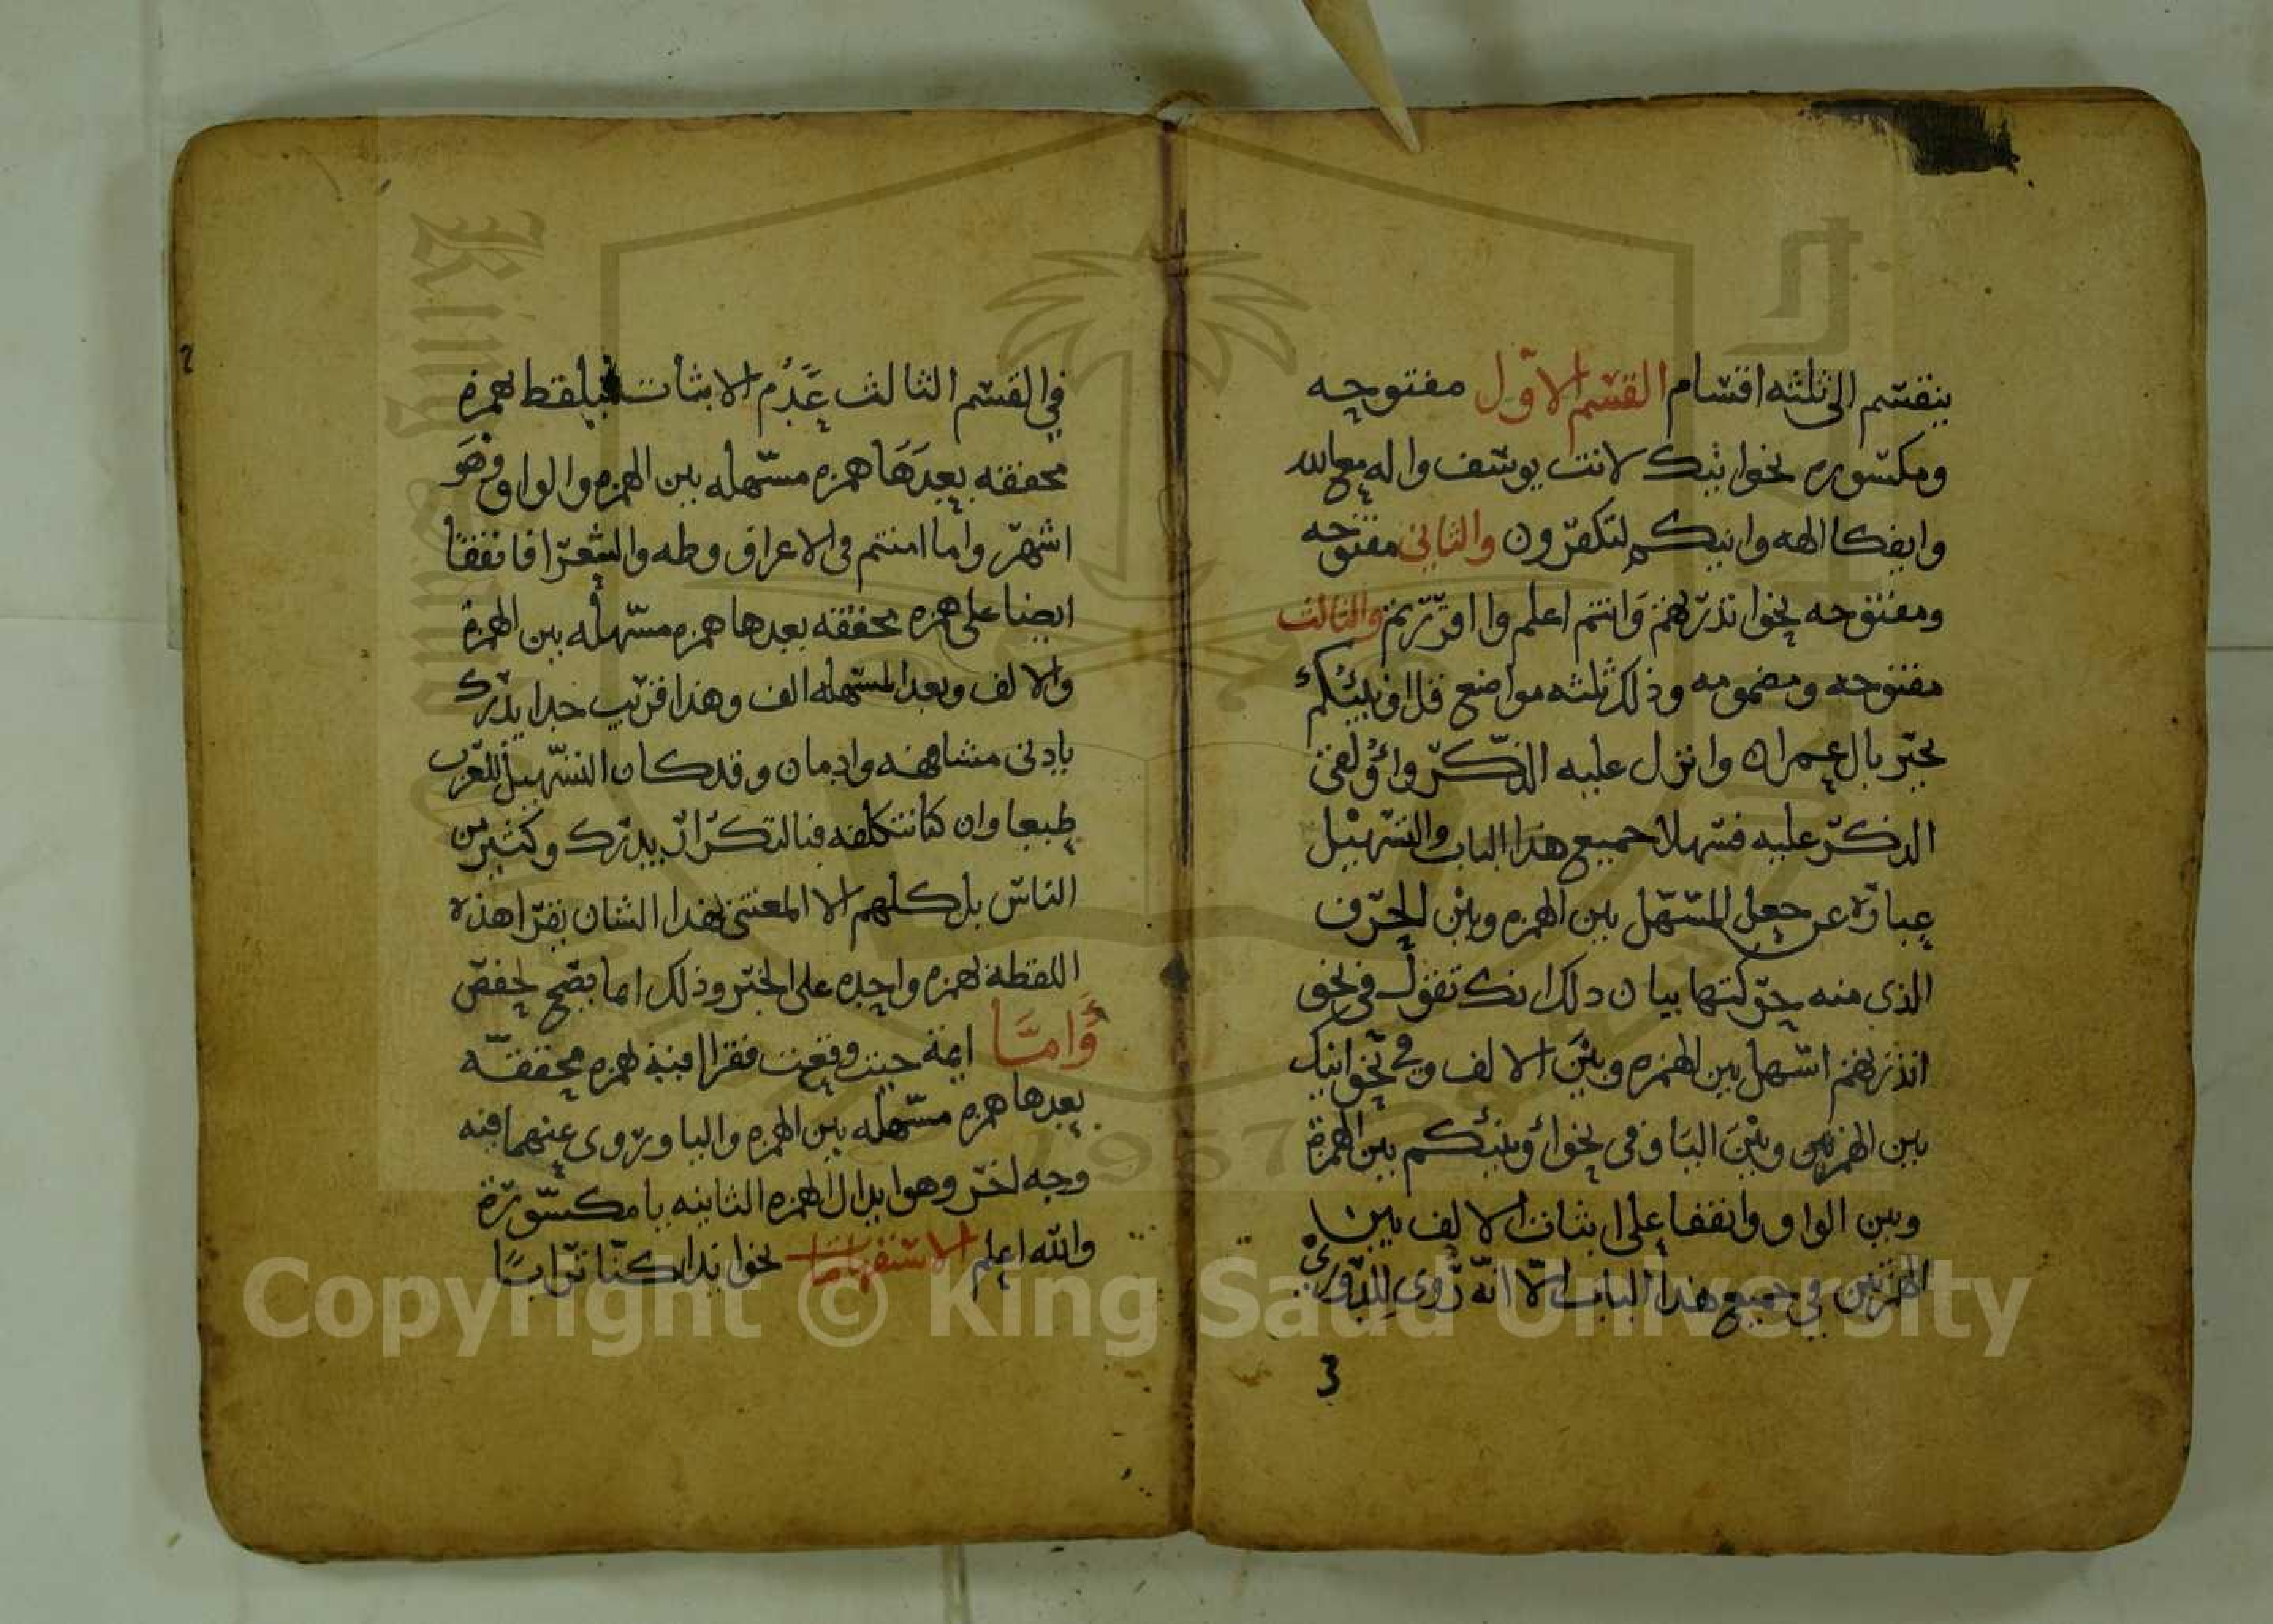 ينقسم الى ثلثه اقسام القسم الاول مفتوحه
ومكسوره نحو ائنك لانت يوسف واله مع الله
وايفكا الهه وانبكم لتكفرون والثاني مفتوحه
ومفتوحه نحو انذرتهم وانتم اعلم واا قررتم والثالث
مفتوحه ومضمومه وذلك ثلثه مواضع قل اؤنبئكم
بخير بال عمران وانزل عليه الذكر وأؤلقى
الذكر عليه فسهلا جميع هذا الباب والتسهيل
عبارة عن جعل المسهل بين الهمزه وبين الحرف
الذي منه حركتها بيان ذلك انك تقول في نحو
انذرتهم اسهل بين الهمزه وبين الالف وفي نحو اينك
بين الهمزتين وبين اليا وفي نحو أؤنبئكم بين الهمزة
وبين الواو واتفقا على اثبات الالف بين
الهمزتين في جميع هذا الباب الا انه روى للدوري
3
في القسم الثالث عدم الاثبات فيلفظ بهمزه
محققه بعدها همزه مسهله بين الهمزه والواو وهو
اشهر واما امنتم في الاعراف وطه والشعرا فاتفقا
ايضا على همزه محققه بعدها همزه مسهله بين الهمزة
والالف وبعد المسهله الف وهذا قريب جدا يدرك
بادنى مشافهه وادمان وقد كان التسهيل للعرب
طبعا وان كنا نتكلفه فبالتكرار يدرك وكثير من
الناس بل كلهم الا المعتني بهذا الشان يقرا هذه
اللفظة بهمزه واحده على الخبر وذلك انما يصح لحفص
وأما ايمة حيث وقعت فقرا افيه بهمزه محققه
بعدها همزه مسهله بين الهمزه واليا وروى عنهما فيه
وجه اخر وهو ابدال الهمزه الثانيه يا مكسورة
والله اعلم الاستفهاما نحو ائذا كنا ترابا
Copyright © King Saud University
King Saud
1957